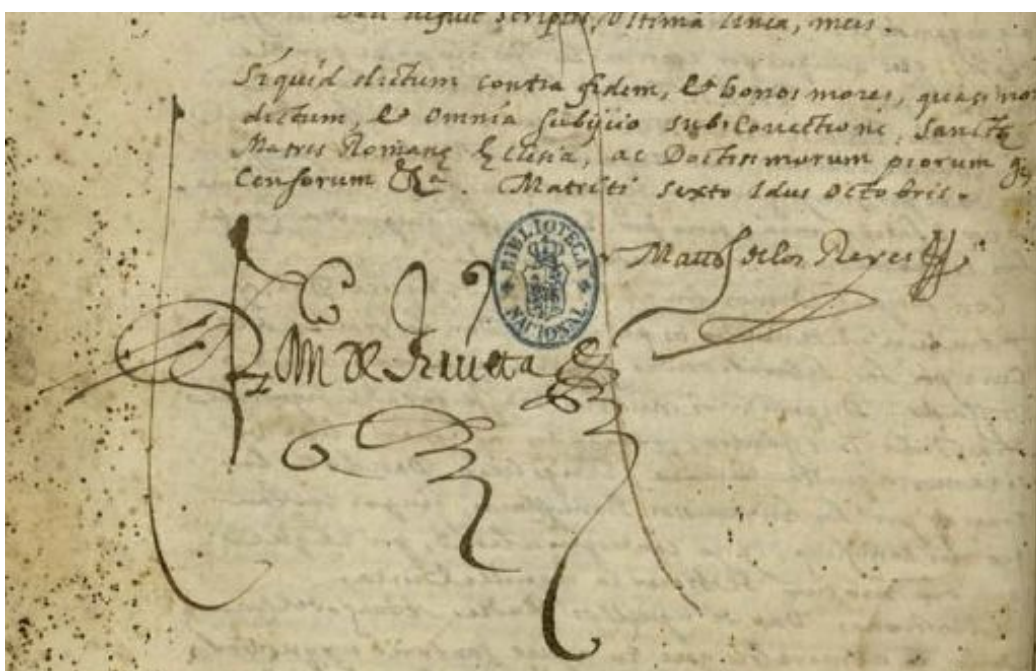 scriptis, Vltima linea, meis.
Siquid dictum contra fidem, & bonos mores, quasi non
dictum, & omnia subijcio sub Correctione, Sanctę
Matris Romanę Ecclesia, ac Doctissimorum piorum q
Censorum &a. Matriti sexto Idus Octobris.
BIBLIOTECA NACIONAL
de los Reyes